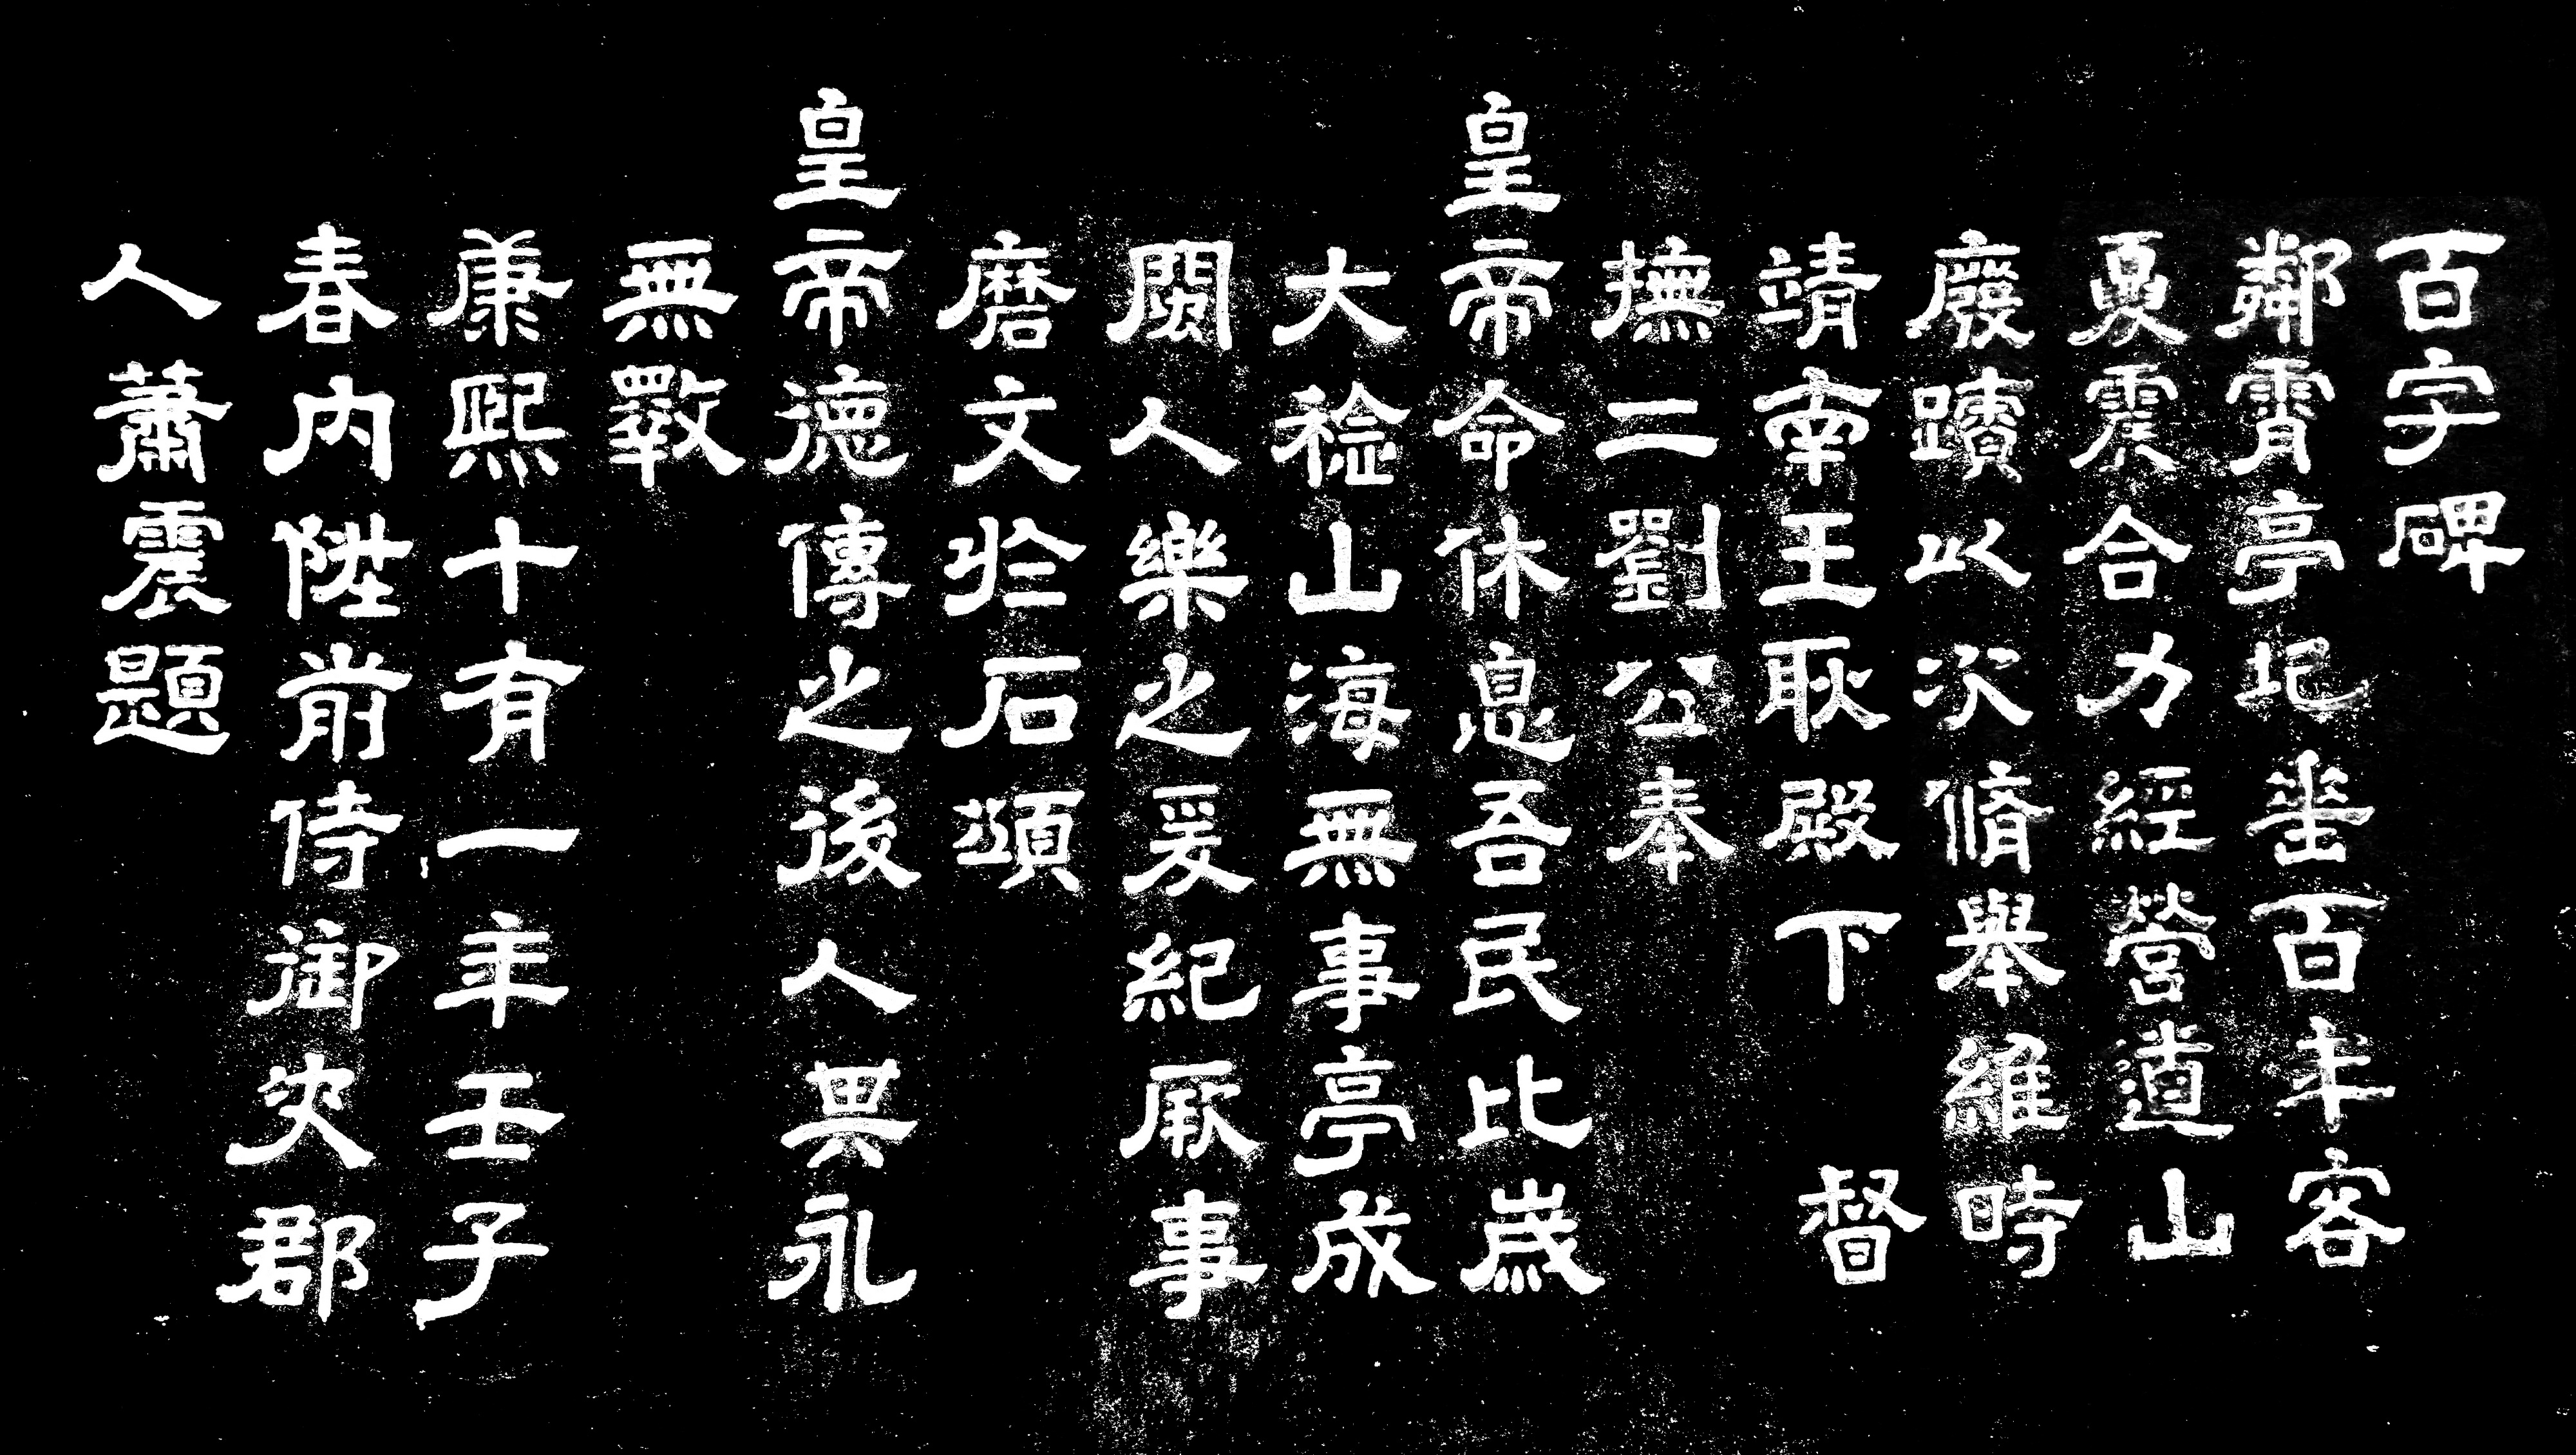 百字碑
鄰霄亭圯垂百年客
夏震合力經營道山
廢蹟以次脩舉維時
靖南王耿殿下　督
撫二劉公奉
皇帝命休息吾民比歲
大稔山海無事亭成
閩人樂之爰紀厥事
磨文於石頌
皇帝德傳之後人異永
無斁
康熙十有一年壬子
春內陞前侍御史郡
人蕭震題